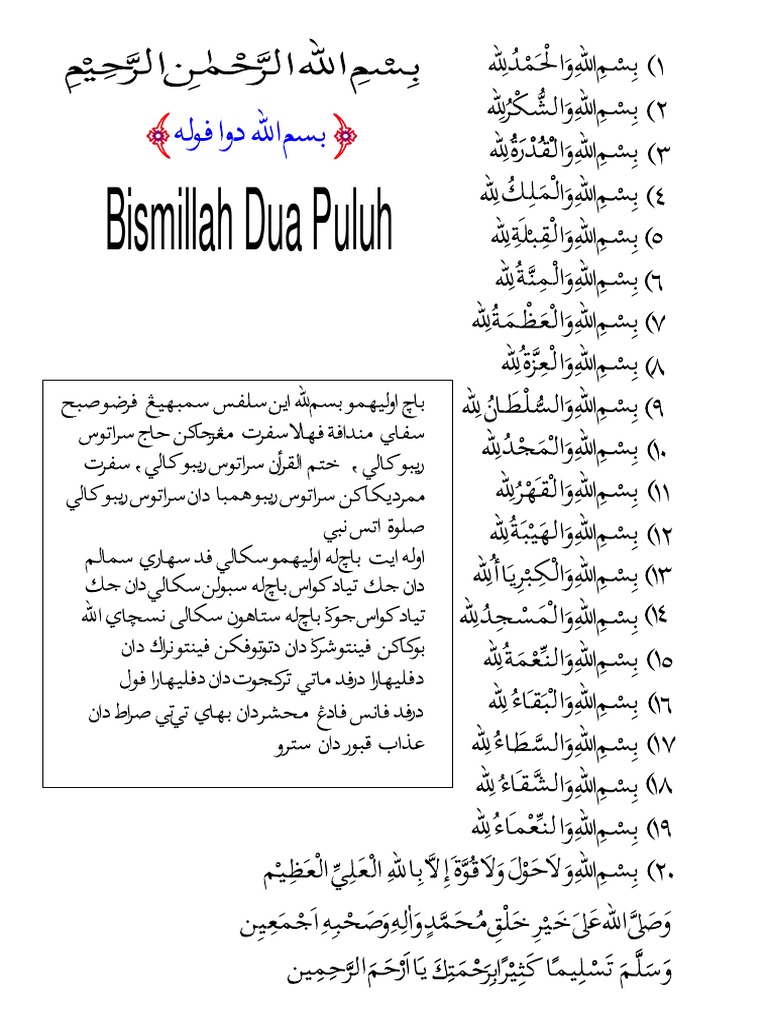 بِسْمِ اللهِ الرَّحْمٰنِ الرَّحِيْمِ
بسم الله دوا فوله
Bismillah Dua Puluh
١) بِسْمِ اللهِ وَالْحَمْدُ لِلّٰهِ
٢) بِسْمِ اللهِ وَالشُّكْرُ لِلّٰهِ
٣) بِسْمِ اللهِ وَالْقُدْرَةُ لِلّٰهِ
٤) بِسْمِ اللهِ وَالْمَلِكُ لِلّٰهِ
٥) بِسْمِ اللهِ وَالْقِبْلَةِ لِلّٰهِ
٦) بِسْمِ اللهِ وَالْمِنَّةُ لِلّٰهِ
٧) بِسْمِ اللهِ وَالْعَظْمَةُ لِلّٰهِ
٨) بِسْمِ اللهِ وَالْعِزَّةُ لِلّٰهِ
٩) بِسْمِ اللهِ وَالسُّلْطَانُ لِلّٰهِ
١٠) بِسْمِ اللهِ وَالْمَجْدُ لِلّٰهِ
١١) بِسْمِ اللهِ وَالْقَهْرُ لِلّٰهِ
١٢) بِسْمِ اللهِ وَالْهَيْبَةُ لِلّٰهِ
١٣) بِسْمِ اللهِ وَالْكِبْرِيَاأُ لِلّٰهِ
١٤) بِسْمِ اللهِ وَالْمَسْجِدُ لِلّٰهِ
١٥) بِسْمِ اللهِ وَالنِّعْمَةُ لِلّٰهِ
١٦) بِسْمِ اللهِ وَالْبَقَاءُ لِلّٰهِ
١٧) بِسْمِ اللهِ وَالسَّطَاءُ لِلّٰهِ
١٨) بِسْمِ اللهِ وَالشَّقَاءُ لِلّٰهِ
١٩) بِسْمِ اللهِ وَالنِّعْمَاءُ لِلّٰهِ
٢٠) بِسْمِ اللهِ وَلَا حَوْلَ وَلَا قُوَّةَ إِلَّا بِاللهِ الْعَلِيِّ الْعَظِيْمِ
وَصَلَّى الله عَلَى خَيْرِ خَلْقِ مُحَمَّدٍ وَاٰلِهِ وَصَحْبِهِ اَجْمَعِين
وَسَلَّمَ تَسْلِيمًا كَثِيْرًا بِرَحْمَتِكَ يَا اَرْحَمَ الرَّحِمِين
باچ اوليهمو بسم لله اين سلفس سمبهيڠ فرضو صبح
سفاي مندافة فهالا سفرت مڠرجاكن حاج سراتوس
ريبو كالي , ختم القرأن سراتوس ريبو كالي , سفرت
ممرديكاكن سراتوس ريبو همبا دان سراتوس ريبو كالي
صلوة اتس نبي
اوله ايت باچ له اوليهمو سكالي فد سهاري سمالم
دان جك تياد كواس باچ له سبولن سكالي دان جك
تياد كواس جوݢ باچ له ستاهون سكالى نسچاي الله
بوكاكن فينتو شرݢ دان دتوتوفكن فينتو نراك دان
دفليهارا درفد ماتي تركجوت دان دفليهارا فول
درفد فانس فادڠ محشر دان بهاي تيتي صراط دان
عذاب قبور دان سترو